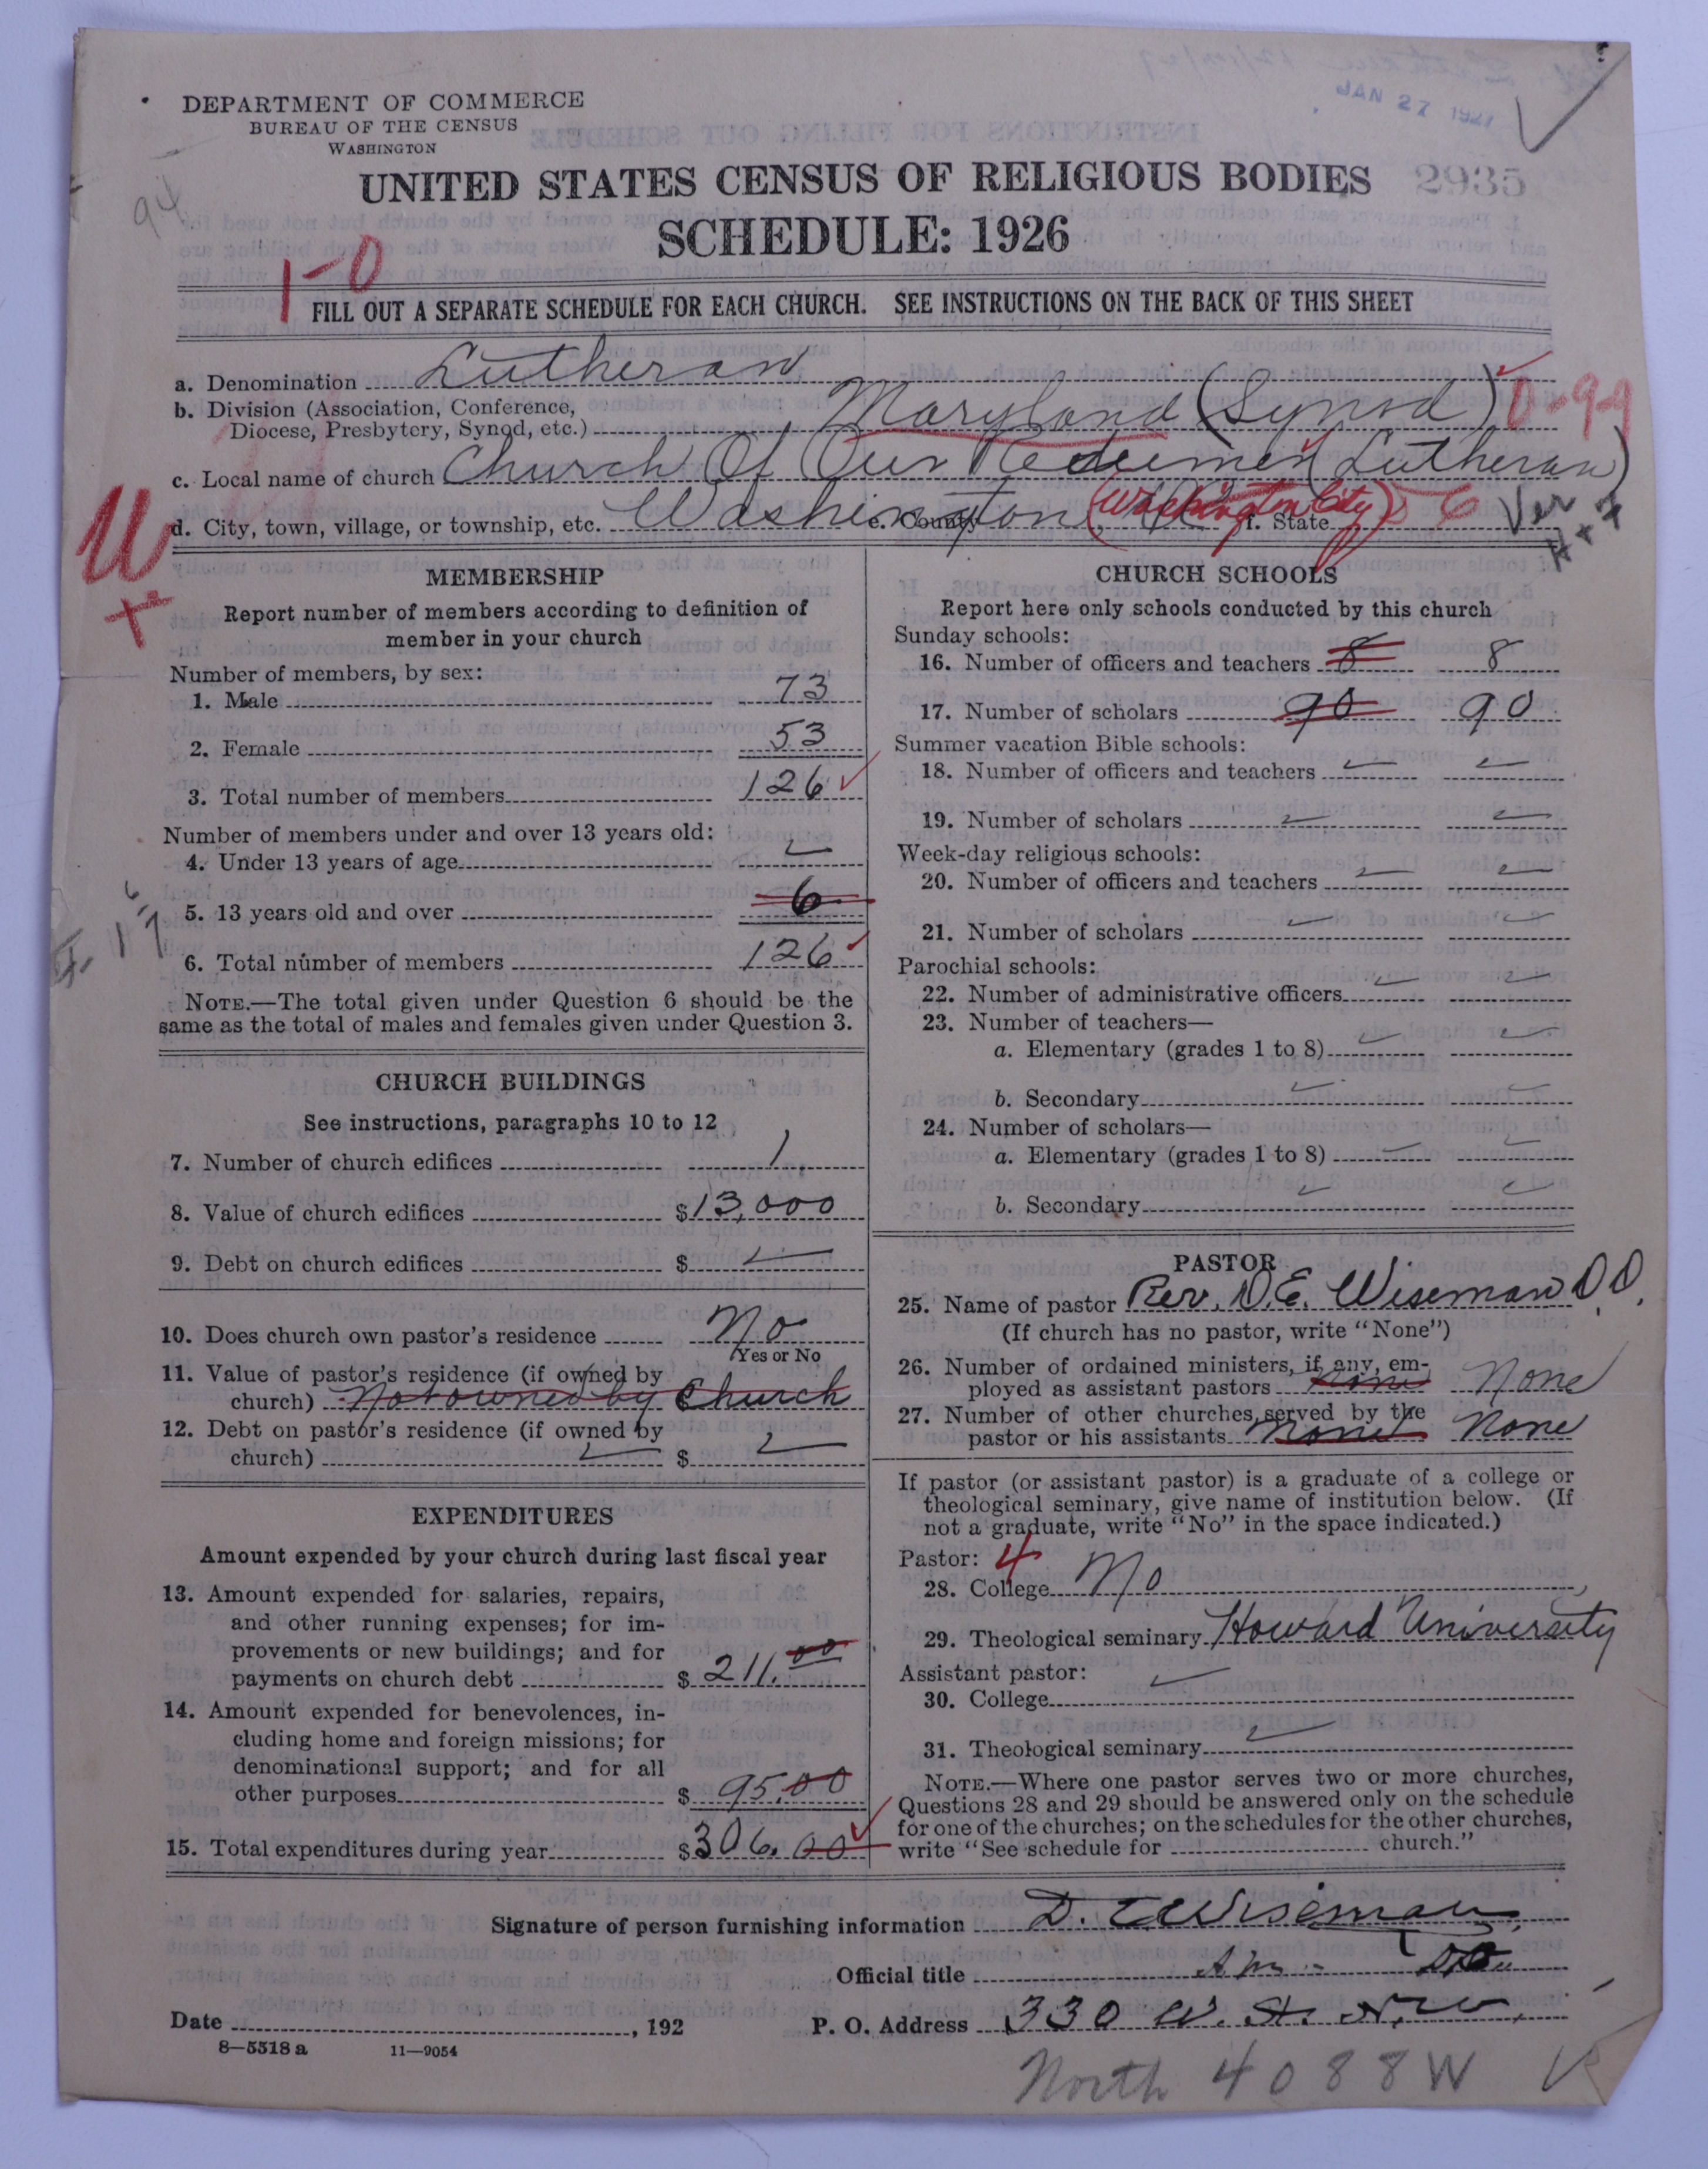 JAN 27 1927
DEPARTMENT OF COMMERCE
BUREAU OF THE CENSUS
WASHINGTON
UNITED STATES CENSUS OF RELIGIOUS BODIES 2935
SCHEDULE: 1926
94
1-0
FILL OUT A SEPARATE SCHEDULE FOR EACH CHURCH. SEE INSTRUCTIONS ON THE BACK OF THIS SHEET
a. Denomination Lutheran
b. Division (Association, Conference,
Diocese, Presbytery, Synod, etc.) Maryland (Synod) 0-99
c. Local name of church Church Of Our Redeemer (Lutheran)
d. City, town, village, or township, etc. Washington e. County (Washington City) f. State 6 Ver
MEMBERSHIP
Report number of members according to definition of
member in your church
Number of members, by sex:
1. Male 73
2. Female 53
3. Total number of members 126
Number of members under and over 13 years old:
4. Under 13 years of age
5. 13 years old and over 6
6. Total number of members 126
NOTE.—The total given under Question 6 should be the
same as the total of males and females given under Question 3.
CHURCH BUILDINGS
See instructions, paragraphs 10 to 12
7. Number of church edifices 1
8. Value of church edifices $13,000
9. Debt on church edifices $
10. Does church own pastor's residence No
Yes or No
11. Value of pastor's residence (if owned by
church) Not owned by Church
12. Debt on pastor's residence (if owned by
church) $
EXPENDITURES
Amount expended by your church during last fiscal year
13. Amount expended for salaries, repairs,
and other running expenses; for im-
provements or new buildings; and for
payments on church debt $211.00
14. Amount expended for benevolences, in-
cluding home and foreign missions; for
denominational support; and for all
other purposes $95.00
15. Total expenditures during year $306.00
CHURCH SCHOOLS
Report here only schools conducted by this church
Sunday schools:
16. Number of officers and teachers 8 8
17. Number of scholars 90 90
Summer vacation Bible schools:
18. Number of officers and teachers
19. Number of scholars
Week-day religious schools:
20. Number of officers and teachers
21. Number of scholars
Parochial schools:
22. Number of administrative officers
23. Number of teachers—
a. Elementary (grades 1 to 8)
b. Secondary
24. Number of scholars—
a. Elementary (grades 1 to 8)
b. Secondary
PASTOR
25. Name of pastor Rev. D.E. Wiseman D.D.
(If church has no pastor, write "None")
26. Number of ordained ministers, if any, em-
ployed as assistant pastors None None
27. Number of other churches served by the
pastor or his assistants None None
If pastor (or assistant pastor) is a graduate of a college or
theological seminary, give name of institution below. (If
not a graduate, write "No" in the space indicated.)
Pastor: 4
28. College No
29. Theological seminary Howard University
Assistant pastor:
30. College
31. Theological seminary
NOTE.—Where one pastor serves two or more churches,
Questions 28 and 29 should be answered only on the schedule
for one of the churches; on the schedules for the other churches,
write "See schedule for church."
Signature of person furnishing information D. E. Wiseman
Official title
Date , 192
P. O. Address 330 W. St. N.W.
8—5518 a 11—9054
North 4088W